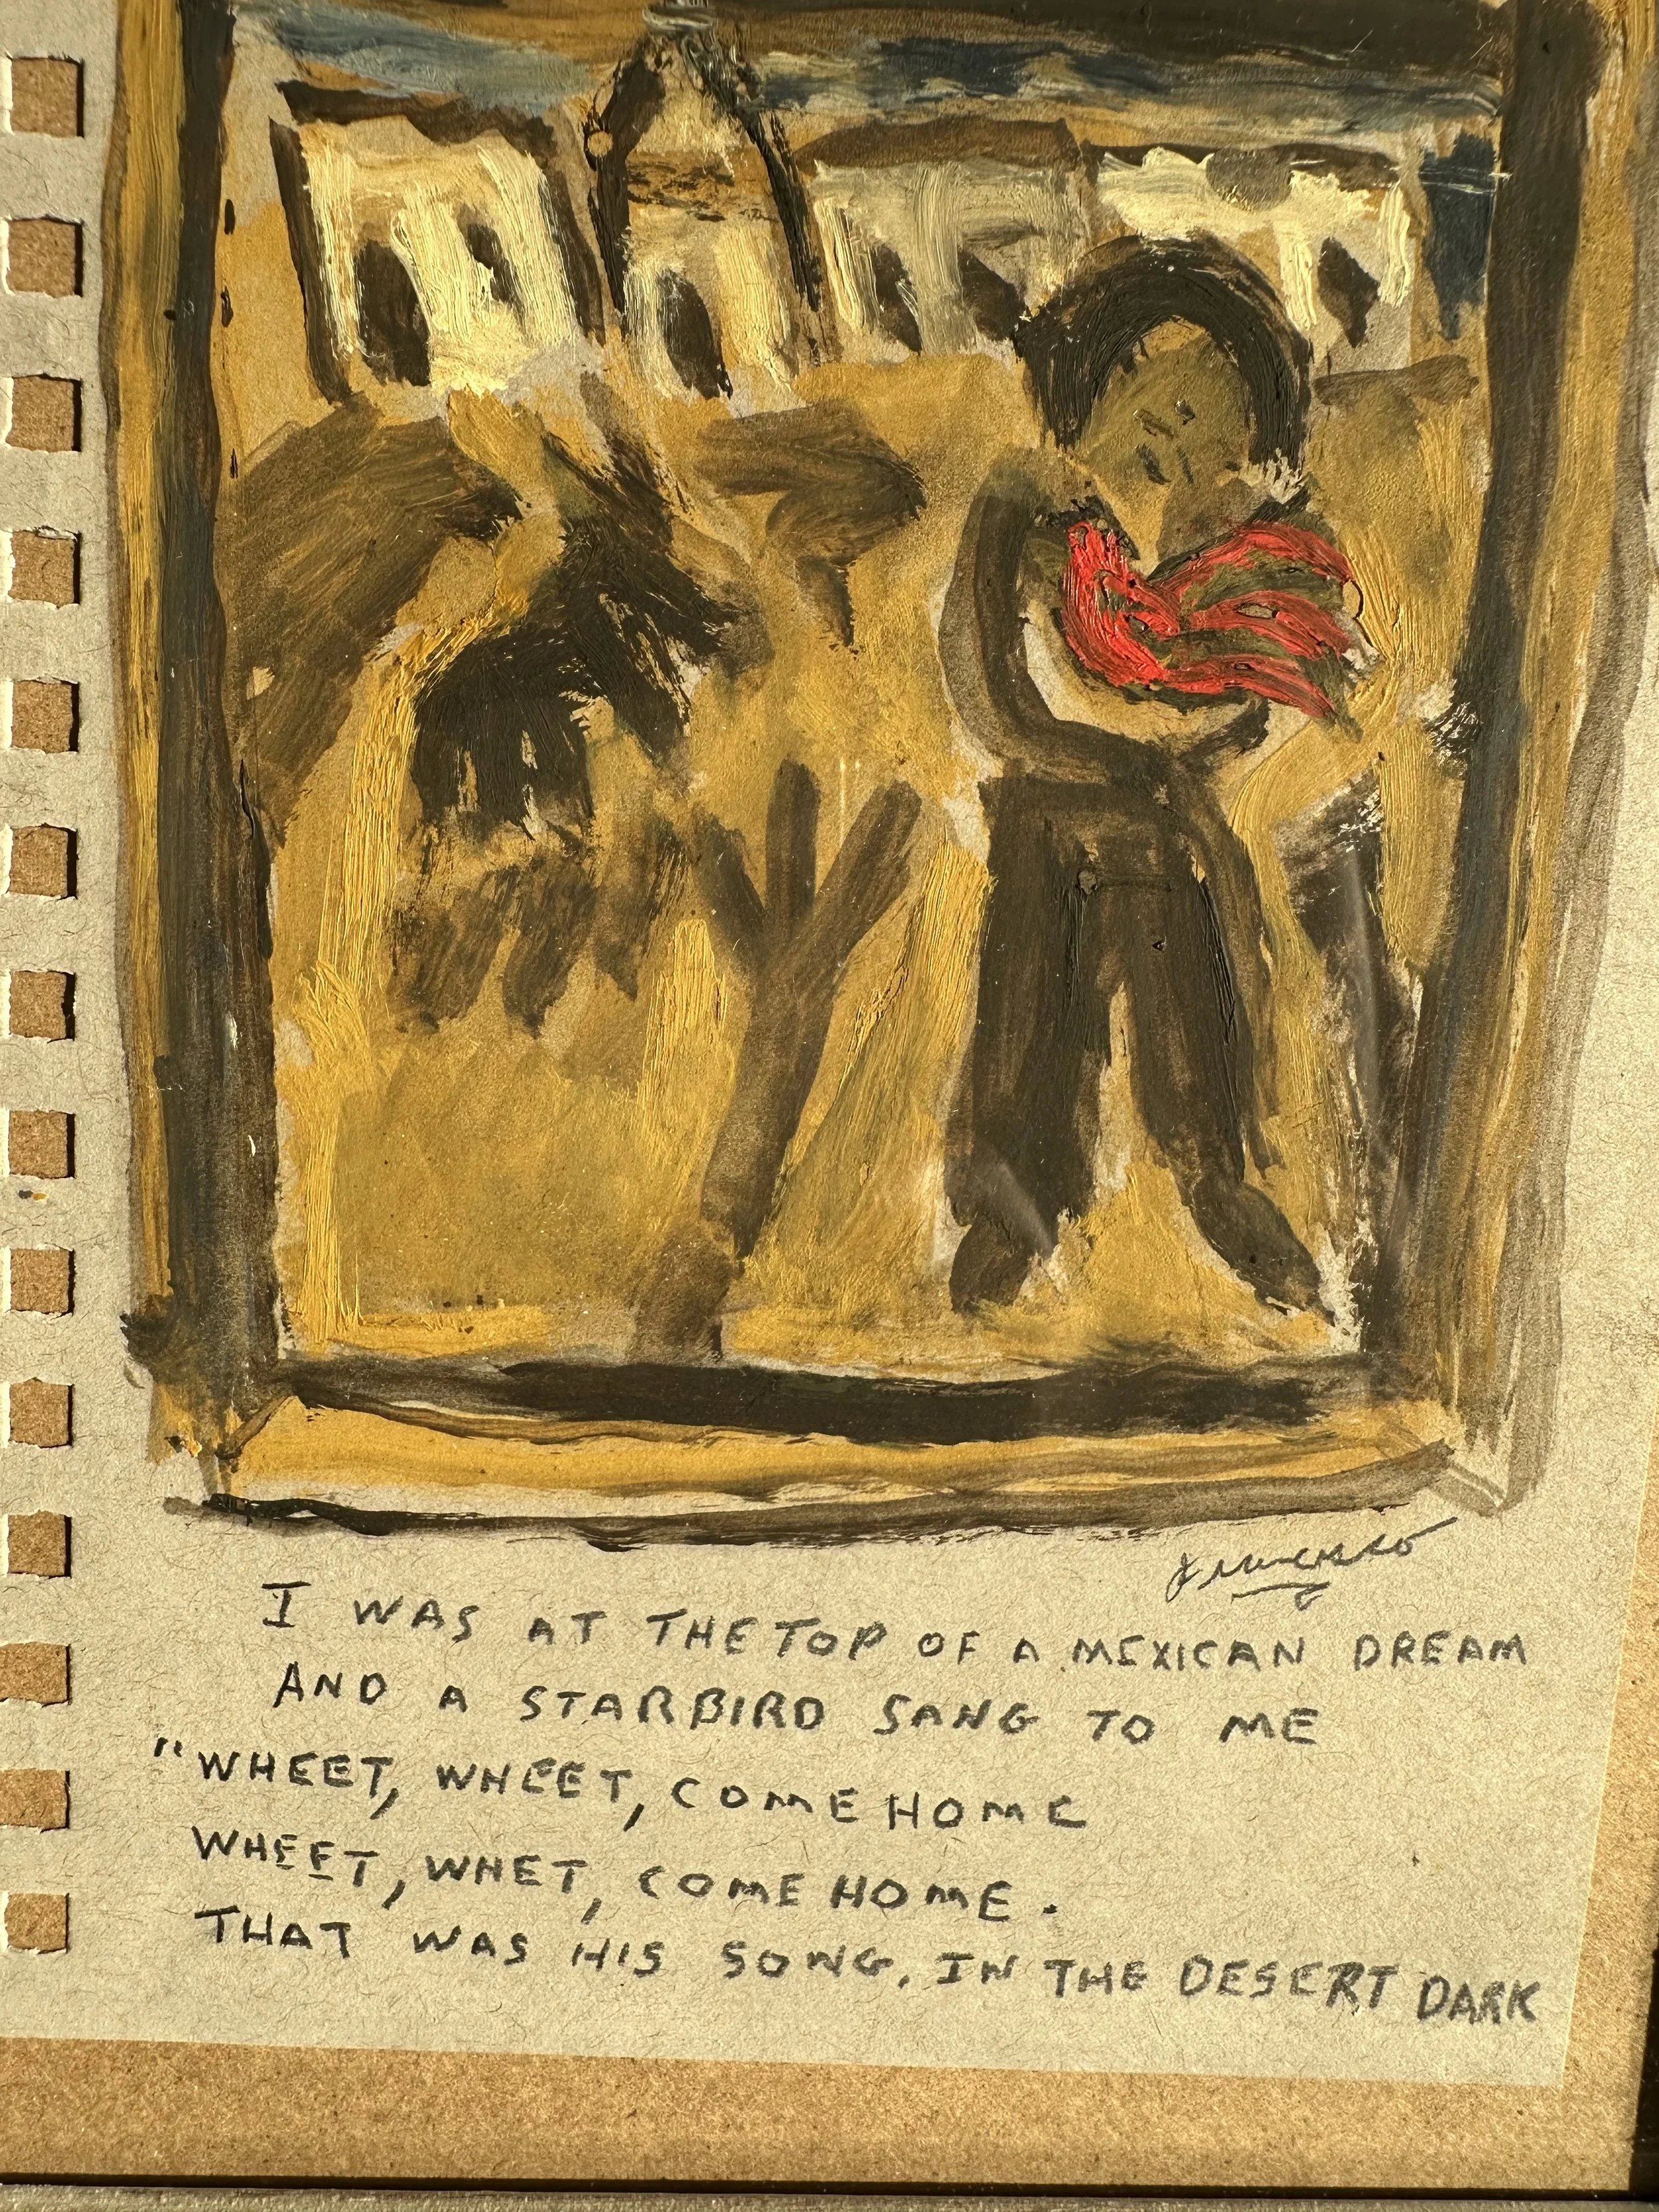 I WAS AT THE TOP OF A MEXICAN DREAM
AND A STARBIRD SANG TO ME
"WHEET, WHEET, COME HOME
WHEET, WHET, COME HOME.
THAT WAS HIS SONG. IN THE DESERT DARK